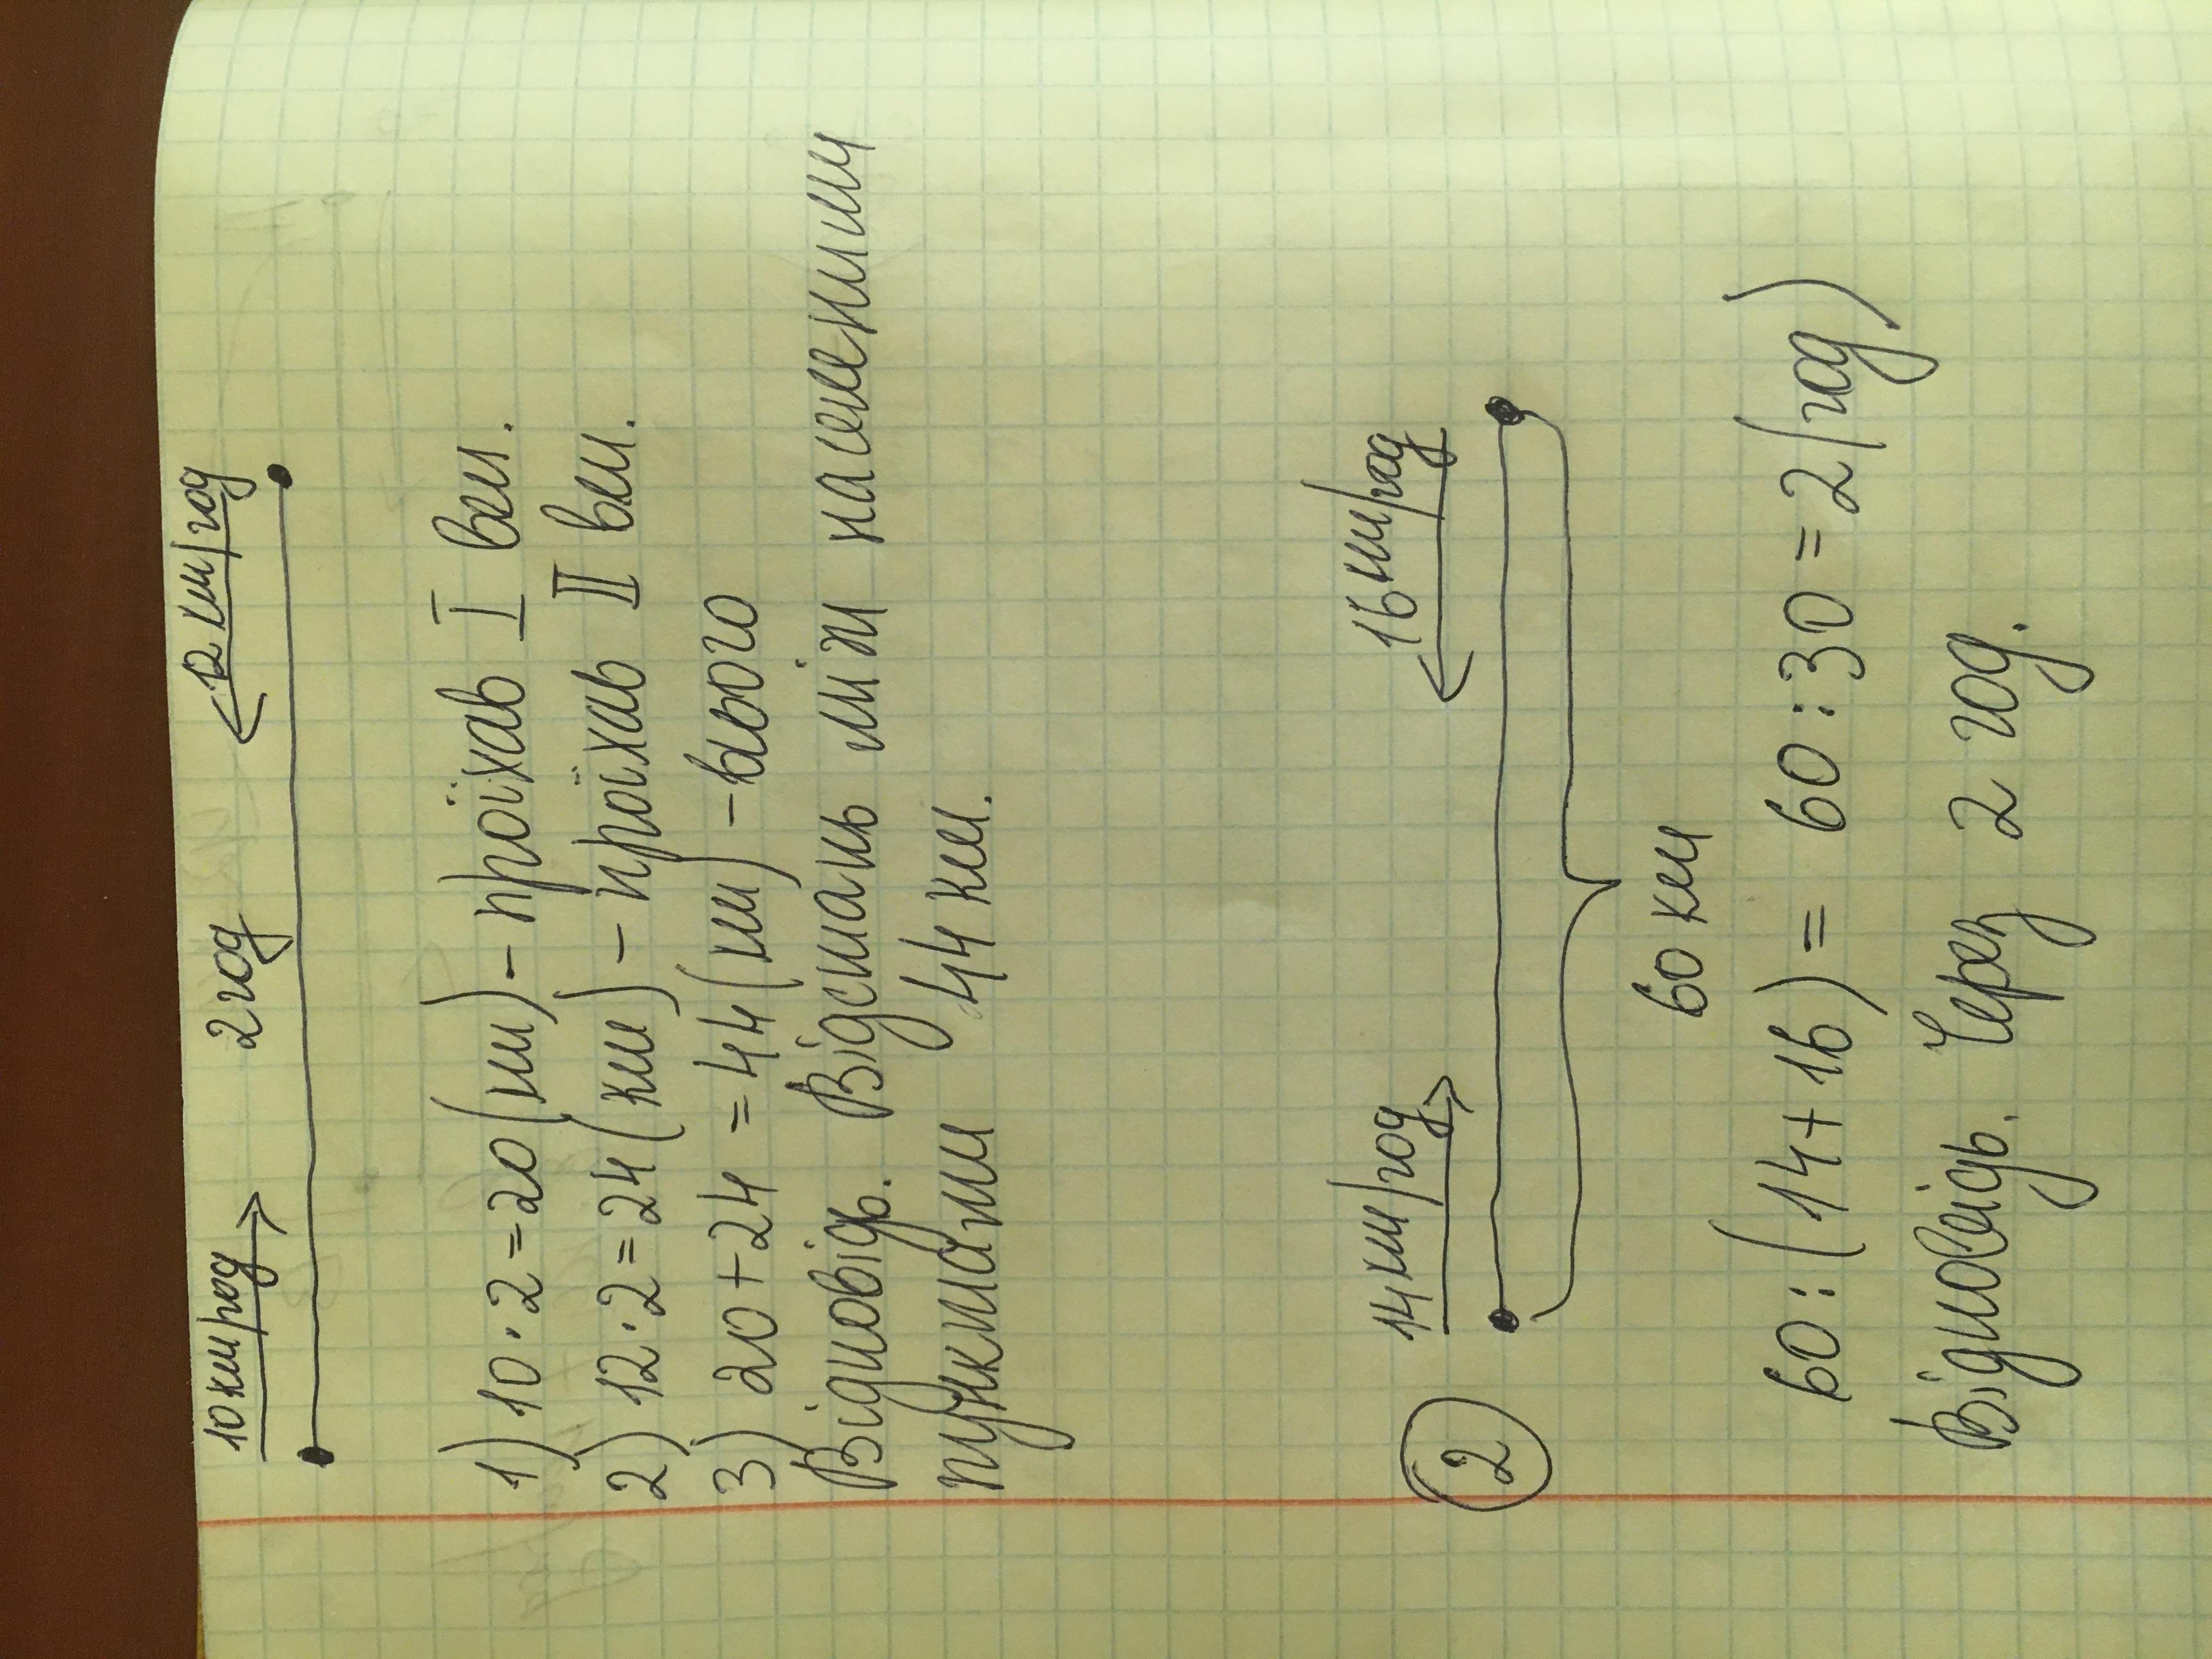 10 км/год 2 год 12 км/год
1) 10 · 2 = 20 (км) - проїхав I вел.
2) 12 · 2 = 24 (км) - проїхав II вел.
3) 20 + 24 = 44 (км) - всього
Відповідь. Відстань між населеними
пунктами 44 км.
14 км/год 16 км/год
2
60 км
60 : (14 + 16) = 60 : 30 = 2 (год)
Відповідь. Через 2 год.